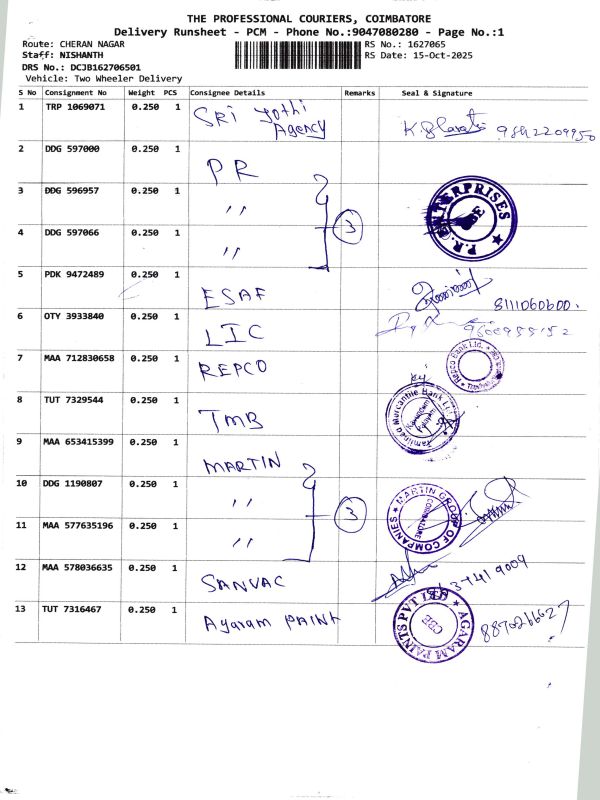 THE PROFESSIONAL COURIERS, COIMBATORE
Delivery Runsheet - PCM - Phone No.:9047080280 - Page No.:1
Route: CHERAN NAGAR
RS No.: 1627065
Staff: NISHANTH
RS Date: 15-Oct-2025
DRS No.: DCJB162706501
Vehicle: Two Wheeler Delivery
S No Consignment No Weight PCS Consignee Details Remarks Seal & Signature
1 TRP 1069071 0.250 1 SRi Jothi Agency
2 DDG 597000 0.250 1 PR
3 DDG 596957 0.250 1 ,, 3 P.R. ENTERPRISES
4 DDG 597066 0.250 1 ,,
5 PDK 9472489 0.250 1 ESAF 8111060600.
6 OTY 3933840 0.250 1 LIC
7 MAA 712830658 0.250 1 REPCO Repco Bank Ltd.
8 TUT 7329544 0.250 1 TMB Tamilnad Mercantile Bank Ltd
9 MAA 653415399 0.250 1 MARTIN
10 DDG 1190807 0.250 1 ,, 3 MARTIN GROUP OF COMPANIES COIMBATORE
11 MAA 577635196 0.250 1 ,,
12 MAA 578036635 0.250 1 SANVAC
13 TUT 7316467 0.250 1 Agaram PAINT AGARAM PAINTS PVT LTD CBE 8870266627